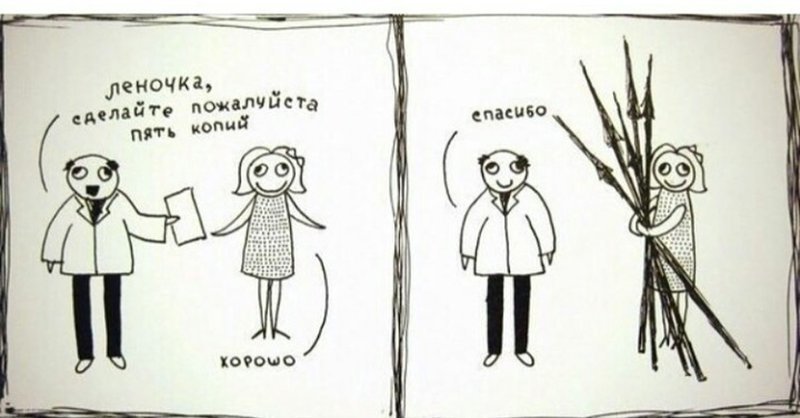 леночка,
сделайте пожалуйста
пять копий
хорошо
спасибо